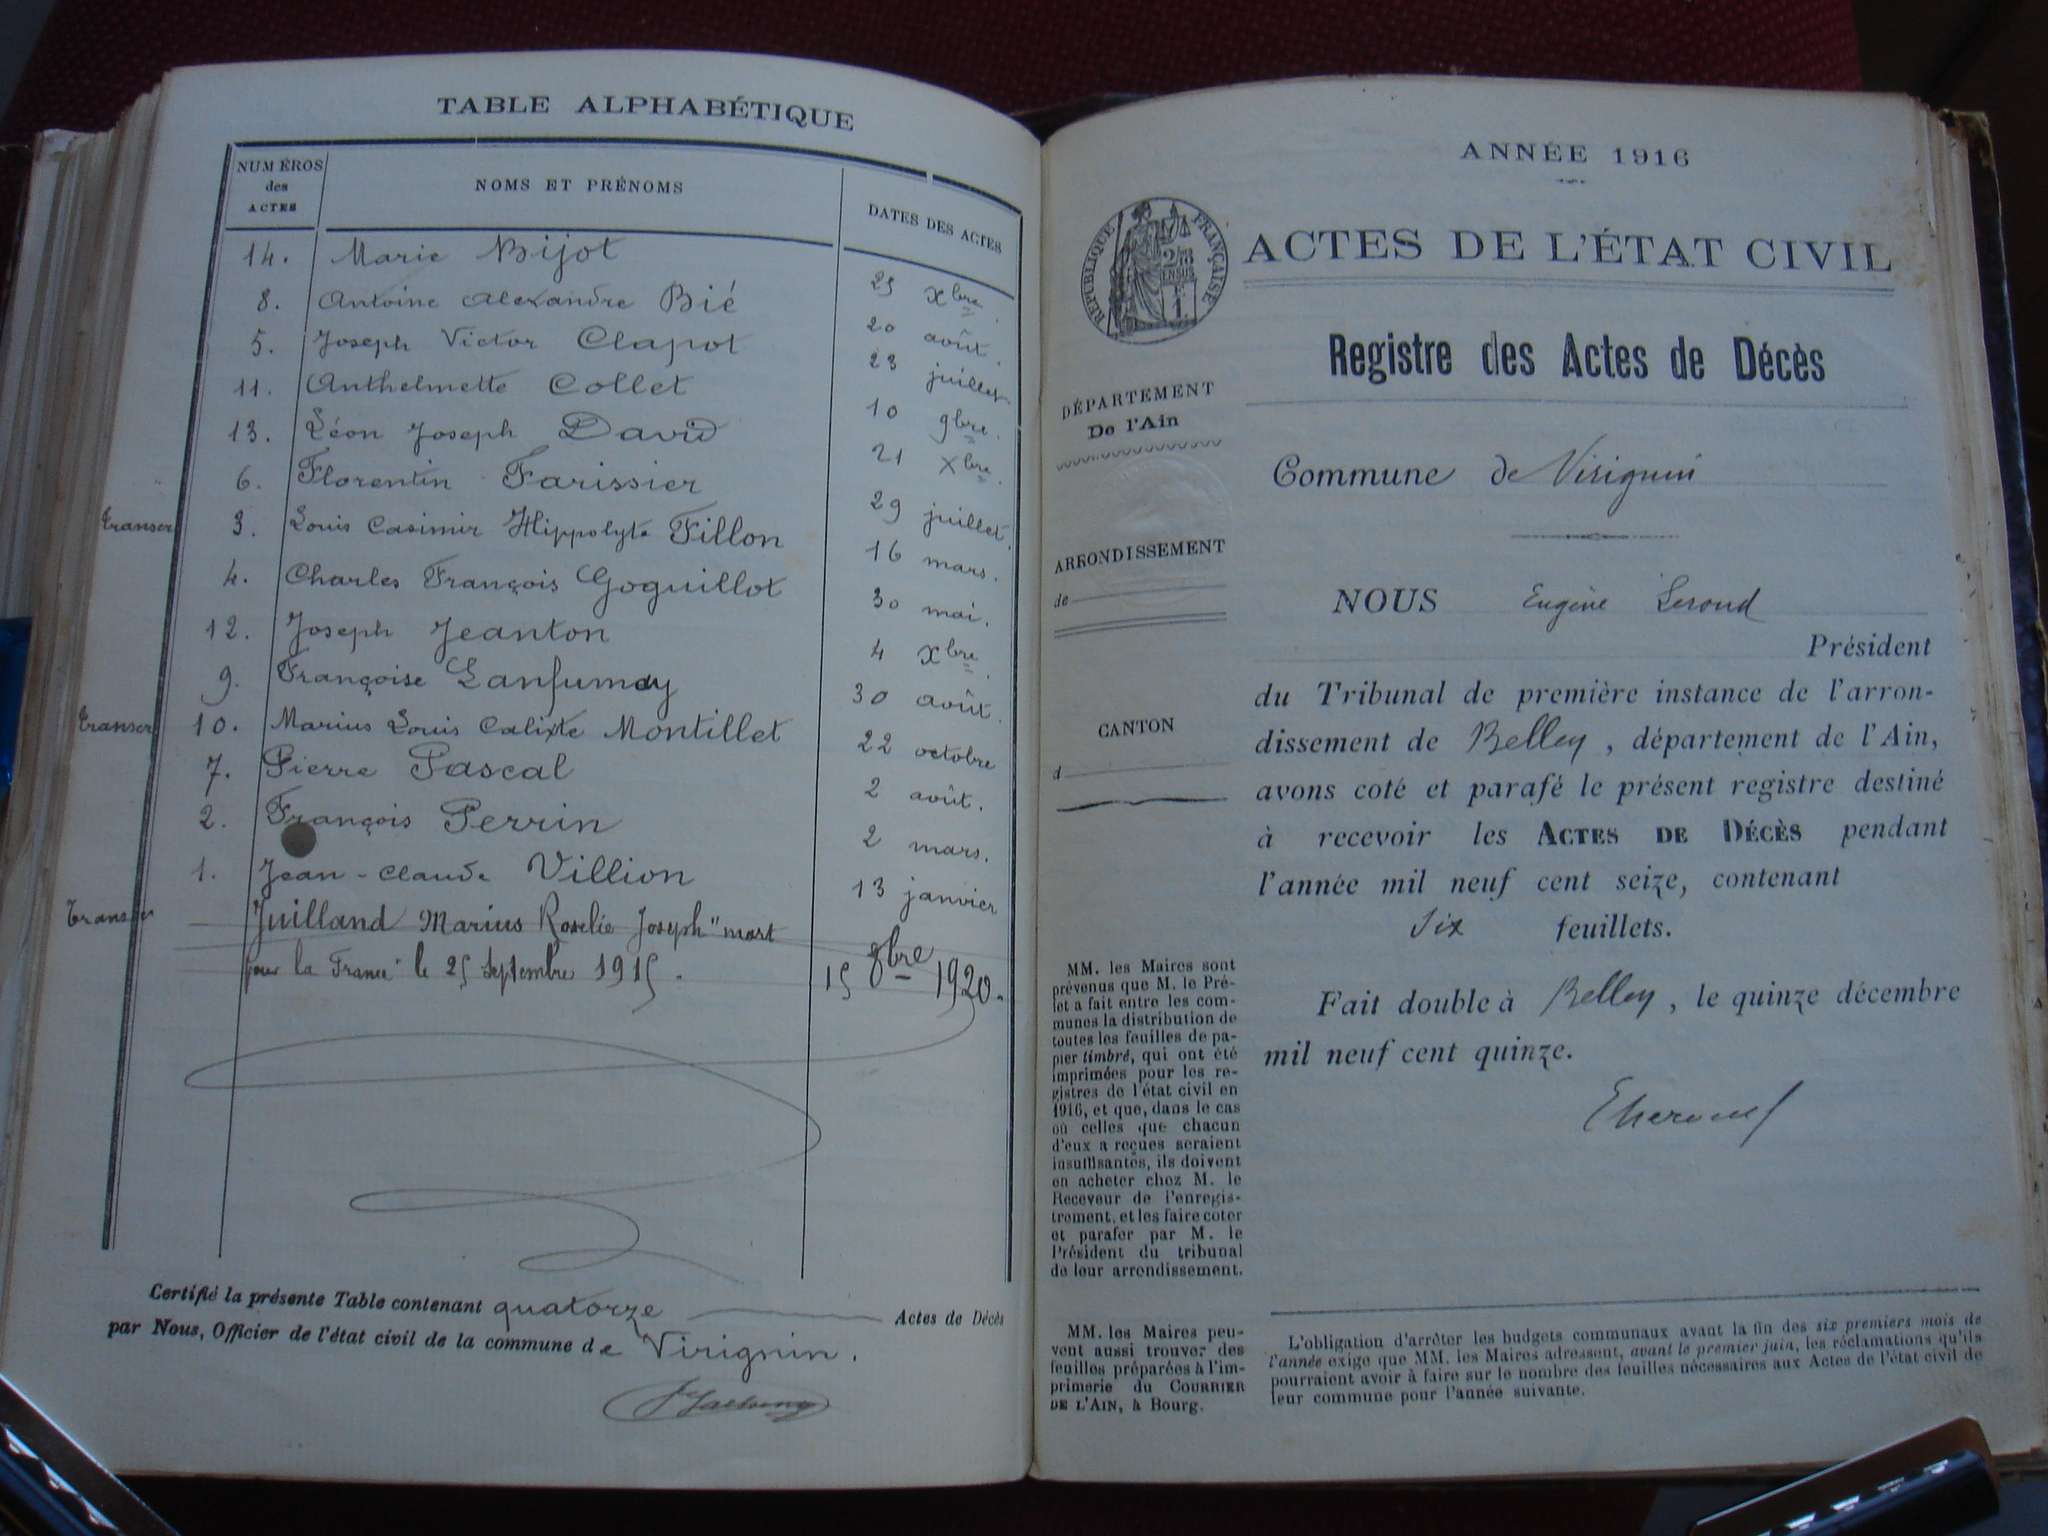 TABLE ALPHABÉTIQUE
NUMÉROS des ACTES
NOMS ET PRÉNOMS
DATES DES ACTES
14. Marie Bijot 25 Xbre.
8. Antoine Alexandre Bié 20 août.
5. Joseph Victor Clapot 23 juillet
11. Anthelmette Collet 10 9bre.
13. Léon Joseph David 21 Xbre.
6. Florentin Farissier 29 juillet.
transcr 3. Louis Casimir Hippolyte Fillon 16 mars.
4. Charles François Goguillot 30 mai.
12. Joseph Jeanton 4 Xbre.
9. Françoise Lanfumay 30 août.
transcr 10. Marius Louis Calixte Montillet 22 octobre
7. Pierre Pascal 2 août.
2. François Perrin 2 mars.
1. Jean-Claude Villion 13 janvier
Juilland Marius Roselie Joseph "mort
pour la France" le 25 septembre 1915. 15 8bre 1920.
Certifié la présente Table contenant quatorze Actes de Décès
par Nous, Officier de l'état civil de la commune de Virignin.
ANNÉE 1916
RÉPUBLIQUE FRANÇAISE
ACTES DE L'ÉTAT CIVIL
Registre des Actes de Décès
DÉPARTEMENT
De l'Ain
Commune de Virignin
ARRONDISSEMENT
de
NOUS Eugène Leroud
Président
du Tribunal de première instance de l'arron-
dissement de Belley, département de l'Ain,
CANTON
d
avons coté et parafé le présent registre destiné
à recevoir les ACTES DE DÉCÈS pendant
l'année mil neuf cent seize, contenant
Six feuillets.
Fait double à Belley, le quinze décembre
mil neuf cent quinze.
MM. les Maires sont
prévenus que M. le Pré-
fet a fait entre les com-
munes la distribution de
toutes les feuilles de pa-
pier timbré, qui ont été
imprimées pour les re-
gistres de l'état civil en
1916, et que, dans le cas
où celles que chacun
d'eux a reçues seraient
insuffisantes, ils doivent
en acheter chez M. le
Receveur de l'enregis-
trement, et les faire coter
et parafer par M. le
Président du tribunal
de leur arrondissement.
MM. les Maires peu-
vent aussi trouver des
feuilles préparées à l'im-
primerie du COURRIER
DE L'AIN, à Bourg.
L'obligation d'arrêter les budgets communaux avant la fin des six premiers mois de
l'année exige que MM. les Maires adressent, avant le premier juin, les réclamations qu'ils
pourraient avoir à faire sur le nombre des feuilles nécessaires aux Actes de l'état civil de
leur commune pour l'année suivante.